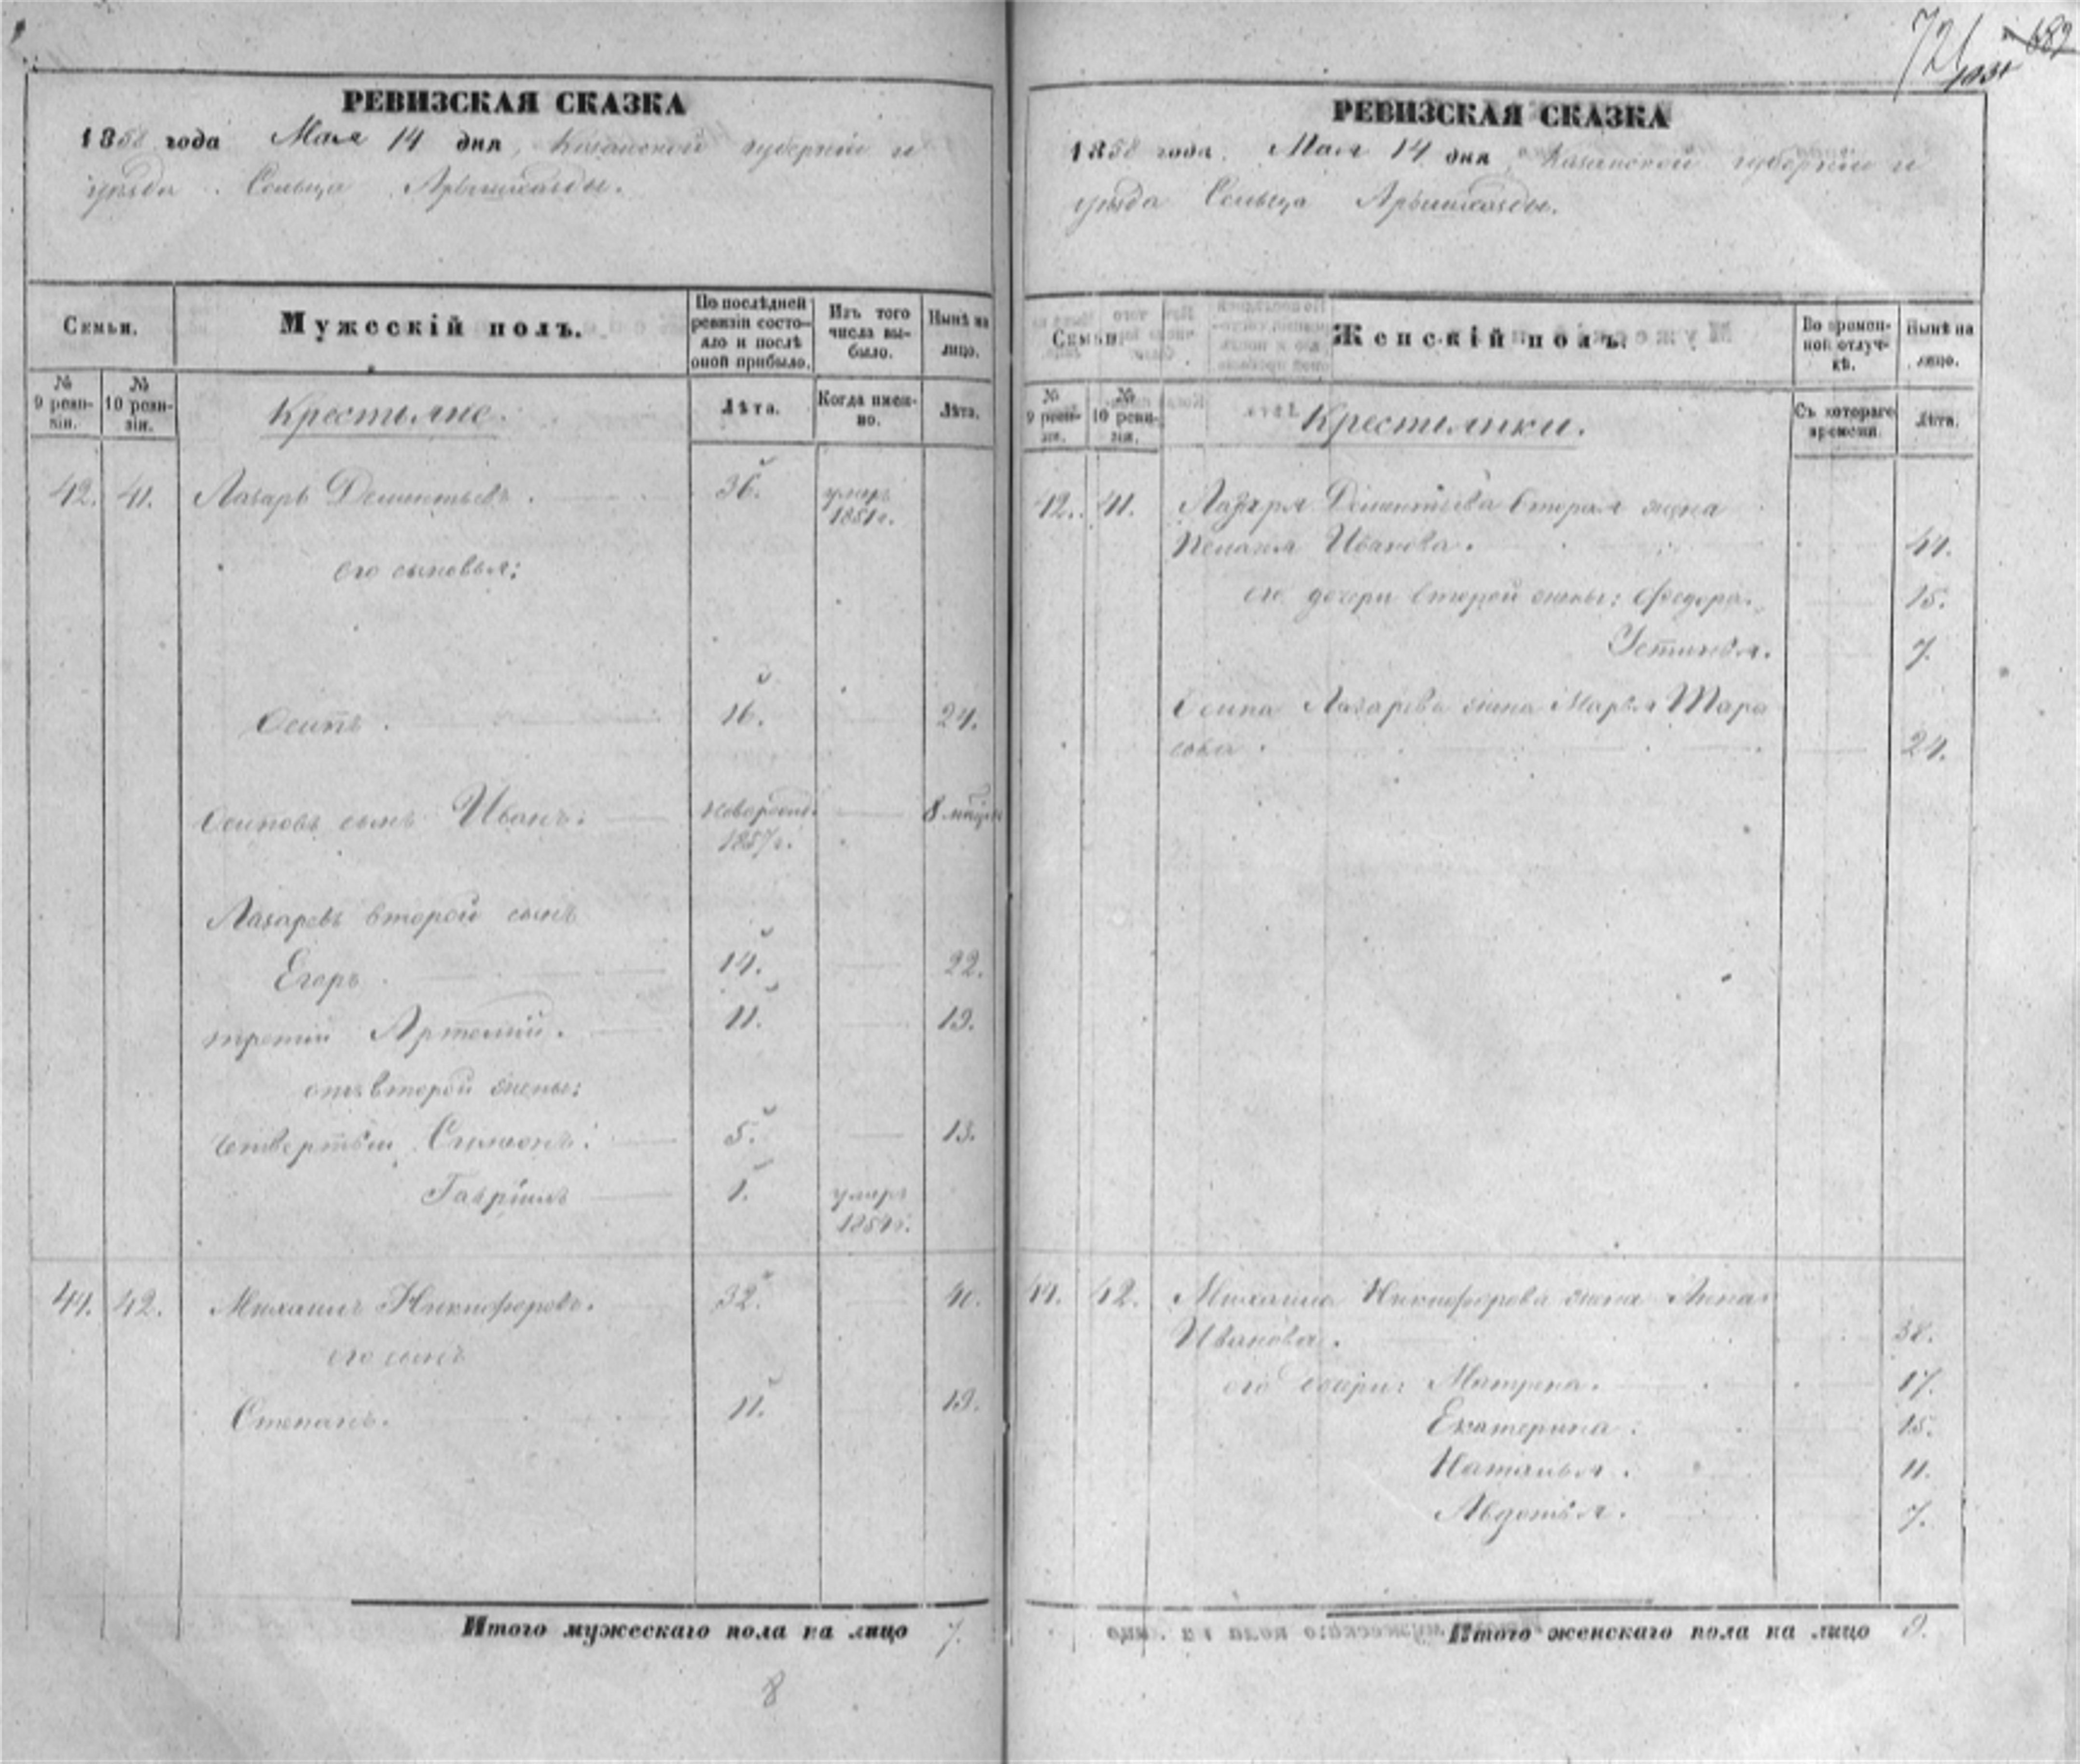 РЕВИЗСКАЯ СКАЗКА
1858 года Мая 14 дня, Казанской губерніи и
уѣзда Сельца Арышхазды.
Семьи.
Мужескій полъ.
По послѣдней ревизіи состояло и послѣ оной прибыло.
Изъ того числа выбыло.
Нынѣ на лицо.
№ 9 ревизіи.
№ 10 ревизіи.
Крестьяне.
Лѣта.
Когда именно.
Лѣта.
42. 41. Лазарь Дементьевъ. 36. умеръ
1851 г.
его сыновья:
Осипъ. 16. 24.
Осиповъ сынъ Иванъ: новорожд. 8 мѣсяц
1857 г.
Лазаревъ второй сынъ
Егоръ 14. 22.
третій Артемій. 11. 19.
отъ второй жены:
четвертый Симеонъ: 5. 13.
Гавріилъ 1. умеръ
1854 г.
44. 42. Михаилъ Никифоровъ. 32. 40.
его сынъ
Степанъ. 11. 19.
Итого мужескаго пола на лицо 7.
8
721
682
РЕВИЗСКАЯ СКАЗКА
1858 года. Мая 14 дня Казанской губерніи и
уѣзда Сельца Арышхазды.
Семьи.
Женскій полъ.
Во временной отлучкѣ.
Нынѣ на лицо.
№ 9 ревизіи.
№ 10 ревизіи.
Крестьянки.
Съ котораго времени.
Лѣта.
42. 41. Лазаря Дементьева вторая жена
Пелагея Иванова. 44.
его дочери второй жены: Федора. 15.
Устинья. 7.
Осипа Лазарева жена Марья Тара
сова. 24.
44. 42. Михаила Никифорова жена Анна
Иванова. 38.
его дочери: Матрена. 17.
Екатерина: 15.
Наталья. 11.
Авдотья. 7.
Итого женскаго пола на лицо 9.